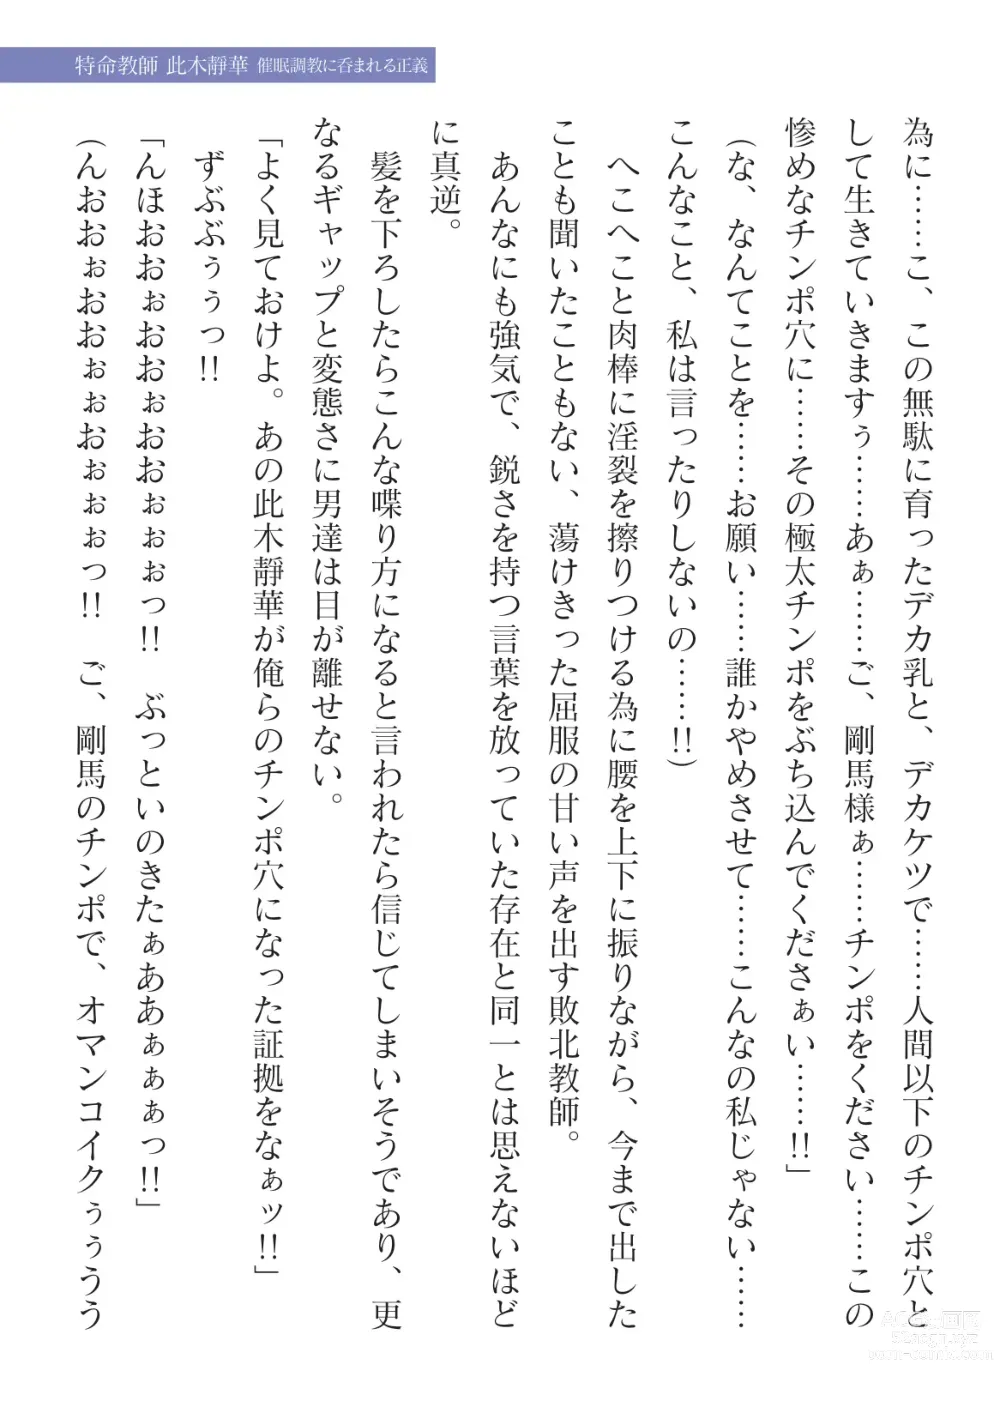 特命教師 此木靜華 催眠調教に呑まれる正義
為に……こ、この無駄に育ったデカ乳と、デカケツで……人間以下のチンポ穴と
して生きていきますぅ……あぁ……ご、剛馬様ぁ……チンポをください……この
惨めなチンポ穴に……その極太チンポをぶち込んでくださぁい……!!」
(な、なんてことを……お願い……誰かやめさせて……こんなの私じゃない……
こんなこと、私は言ったりしないの……!!)
へこへこと肉棒に淫裂を擦りつける為に腰を上下に振りながら、今まで出した
ことも聞いたこともない、蕩けきった屈服の甘い声を出す敗北教師。
あんなにも強気で、鋭さを持つ言葉を放っていた存在と同一とは思えないほど
に真逆。
髪を下ろしたらこんな喋り方になると言われたら信じてしまいそうであり、更
なるギャップと変態さに男達は目が離せない。
「よく見ておけよ。あの此木靜華が俺らのチンポ穴になった証拠をなぁッ!!」
ずぶぶぅぅっ!!
「んほおおぉおおぉおおぉぉぉっ!! ぶっといのきたぁああぁぁぁっ!!」
(んおおぉおおぉぉおぉぉぉっ!! ご、剛馬のチンポで、オマンコイクぅぅうう